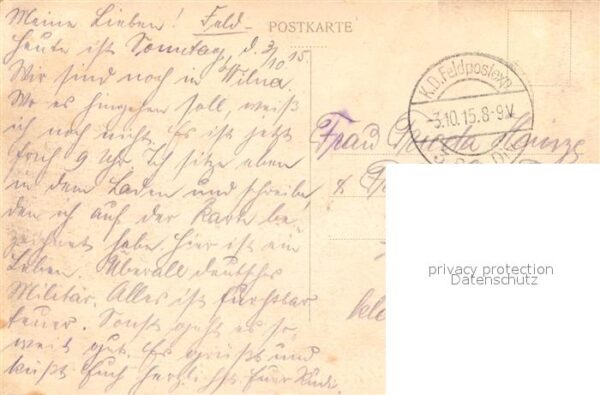 Meine Lieben! Feld-
POSTKARTE
Heute ist Sonntag, d. 3/10 15.
Wir sind noch in Wilna.
Wo es hingehen soll, weiß
ich noch nicht. Es ist jetzt
früh 9 Uhr. Ich sitze eben
in dem Laden und schreibe,
den ich auf der Karte be-
zeichnet habe. Hier ist ein
Leben. Überall deutsches
Militär. Alles ist furchtbar
teuer. Sonst geht es so-
weit gut. Es grüßt und
küßt Euch herzlichst Euer
K.D. Feldpostexp.
-3.10.15. 8-9V.
Frau
privacy protection
Datenschutz